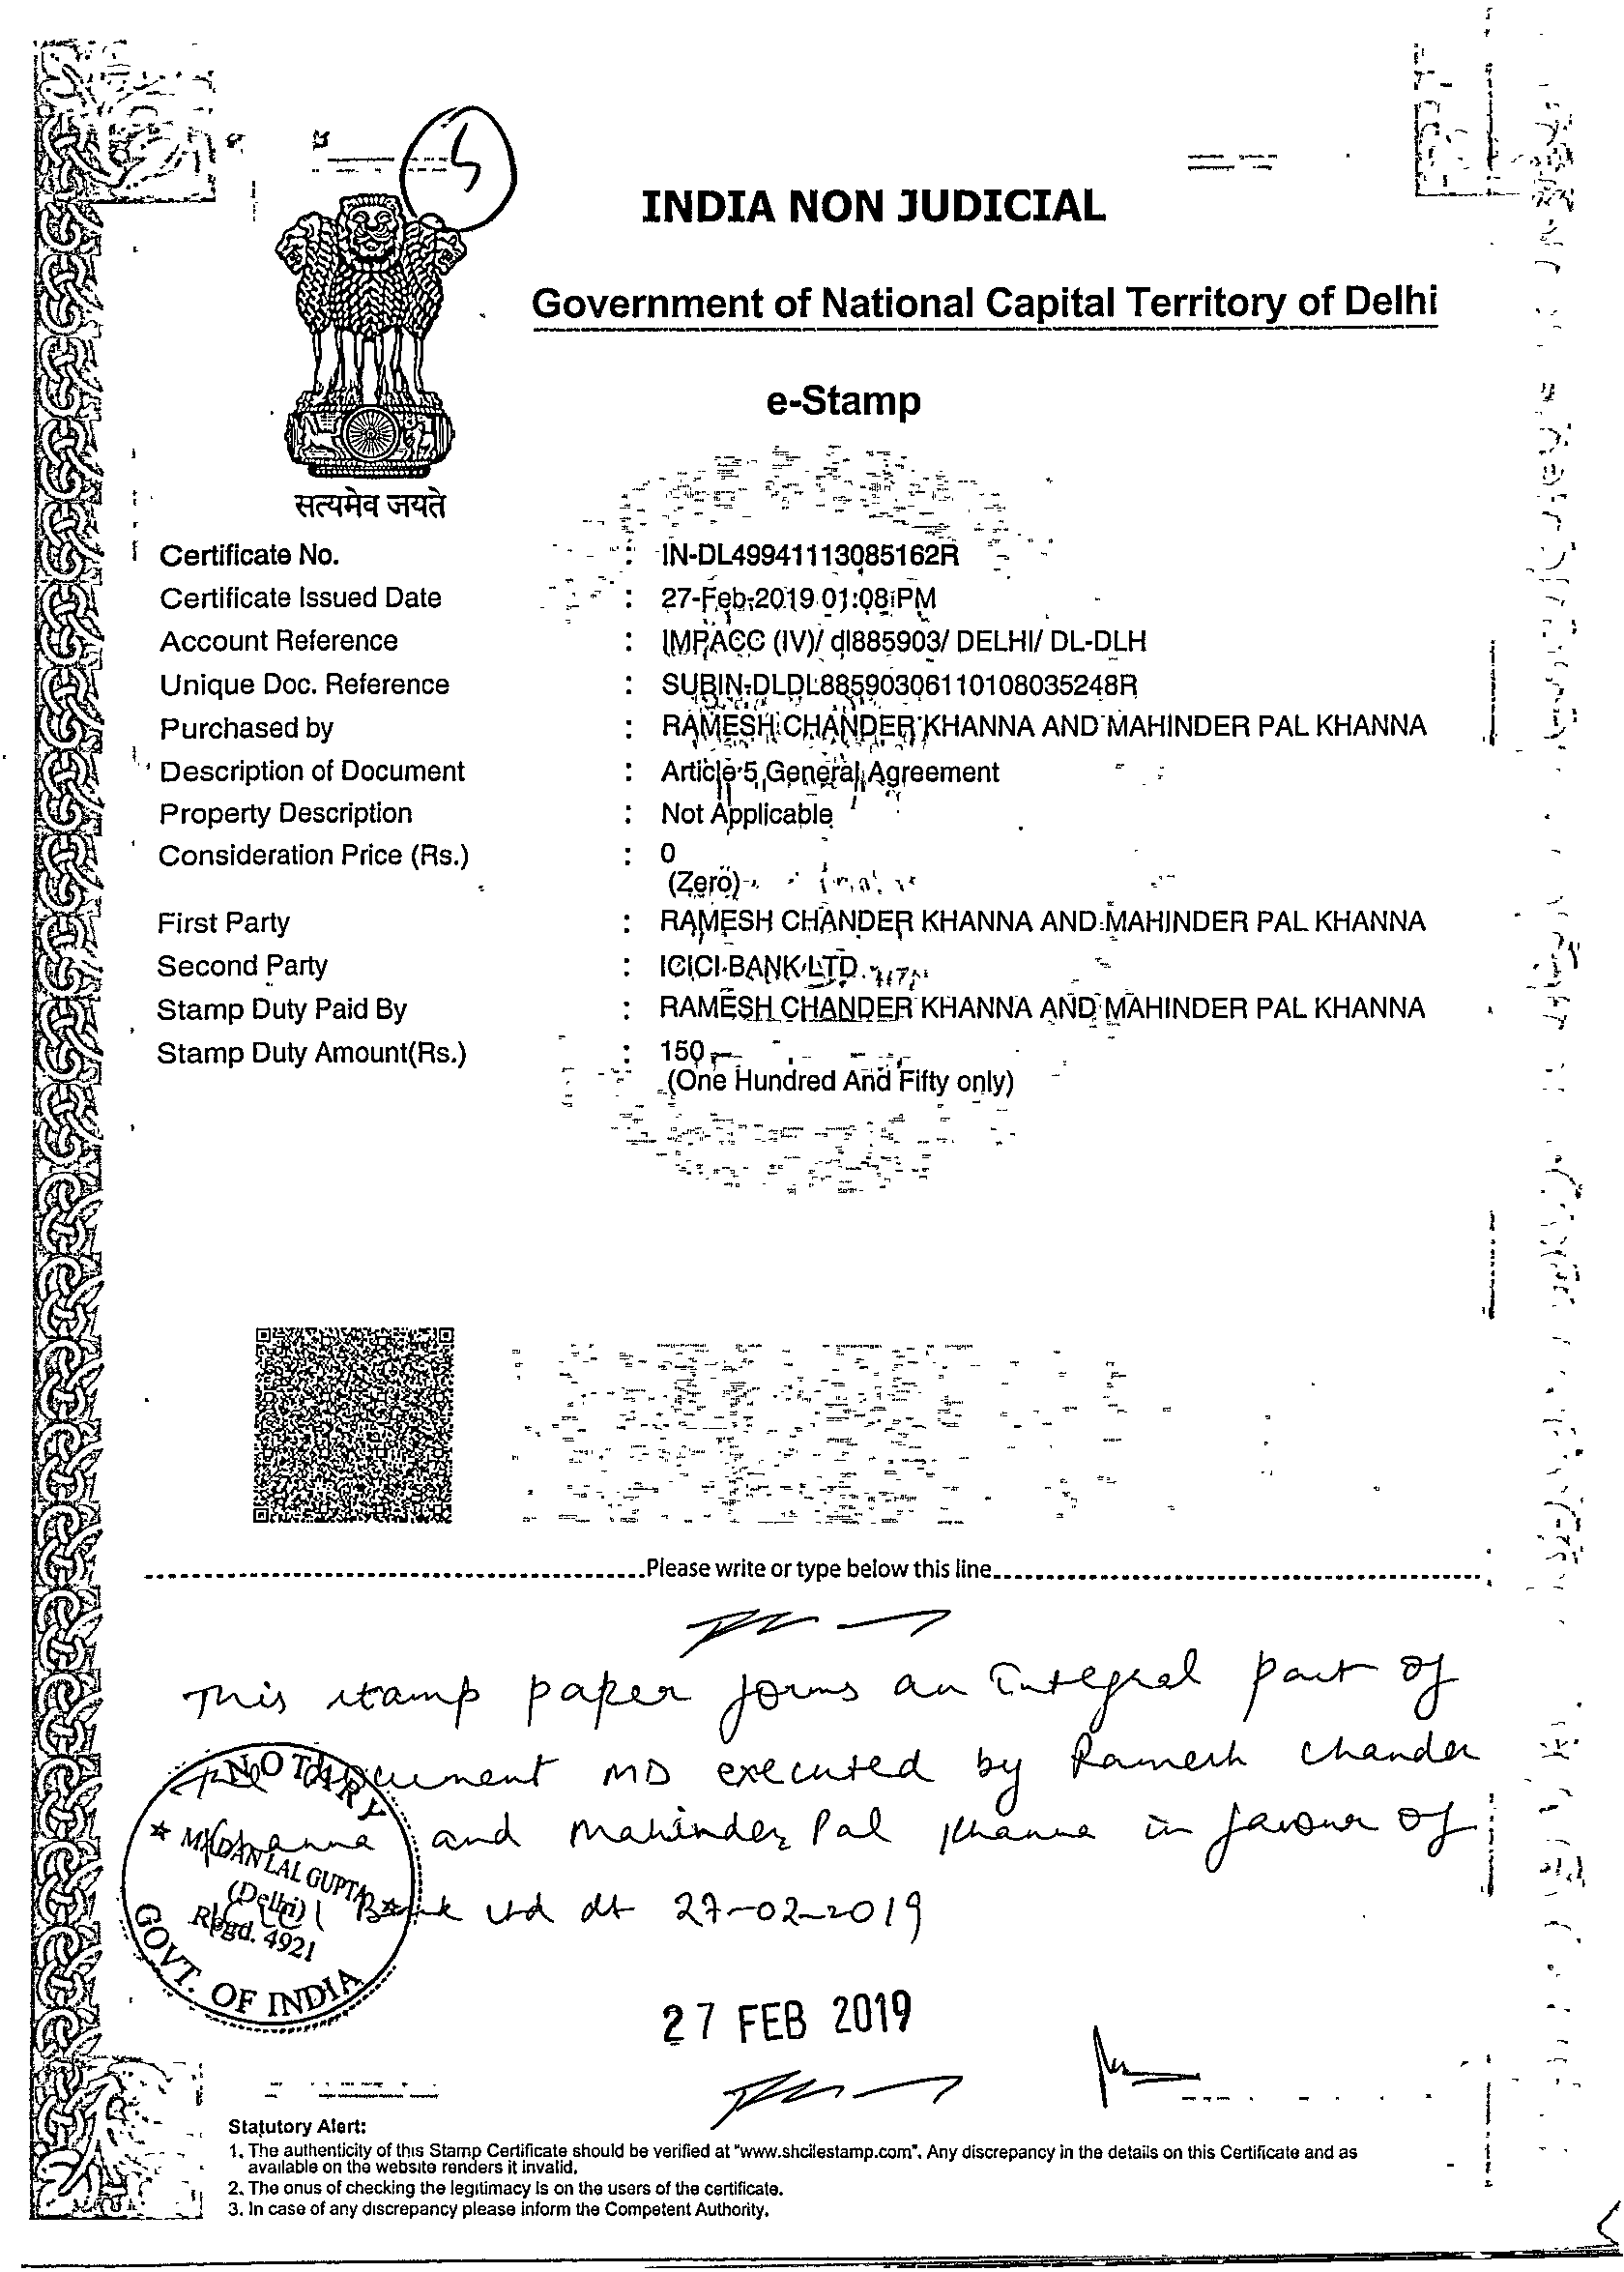 INDIA NON JUDICIAL
Government of National Capital Territory of Delhi
e-Stamp
सत्यमेव जयते
Certificate No. : IN-DL49941113085162R
Certificate Issued Date : 27-Feb-2019 01:08 PM
Account Reference : IMPACC (IV)/ dl885903/ DELHI/ DL-DLH
Unique Doc. Reference : SUBIN-DLDL88590306110108035248R
Purchased by : RAMESH CHANDER KHANNA AND MAHINDER PAL KHANNA
Description of Document : Article 5 General Agreement
Property Description : Not Applicable
Consideration Price (Rs.) : 0
(Zero)
First Party : RAMESH CHANDER KHANNA AND MAHINDER PAL KHANNA
Second Party : ICICI BANK LTD
Stamp Duty Paid By : RAMESH CHANDER KHANNA AND MAHINDER PAL KHANNA
Stamp Duty Amount(Rs.) : 150
(One Hundred And Fifty only)
Please write or type below this line
This stamp paper forms an Integral part of
the document MD executed by Ramesh Chander
Khanna and Mahinder Pal Khanna in favour of
ICICI Bank Ltd dt 27-02-2019
NOTARY
MADAN LAL GUPTA
(Delhi)
Regd. 4921
GOVT. OF INDIA
27 FEB 2019
Statutory Alert:
1. The authenticity of this Stamp Certificate should be verified at "www.shcilestamp.com". Any discrepancy in the details on this Certificate and as
available on the website renders it invalid.
2. The onus of checking the legitimacy is on the users of the certificate.
3. In case of any discrepancy please inform the Competent Authority.